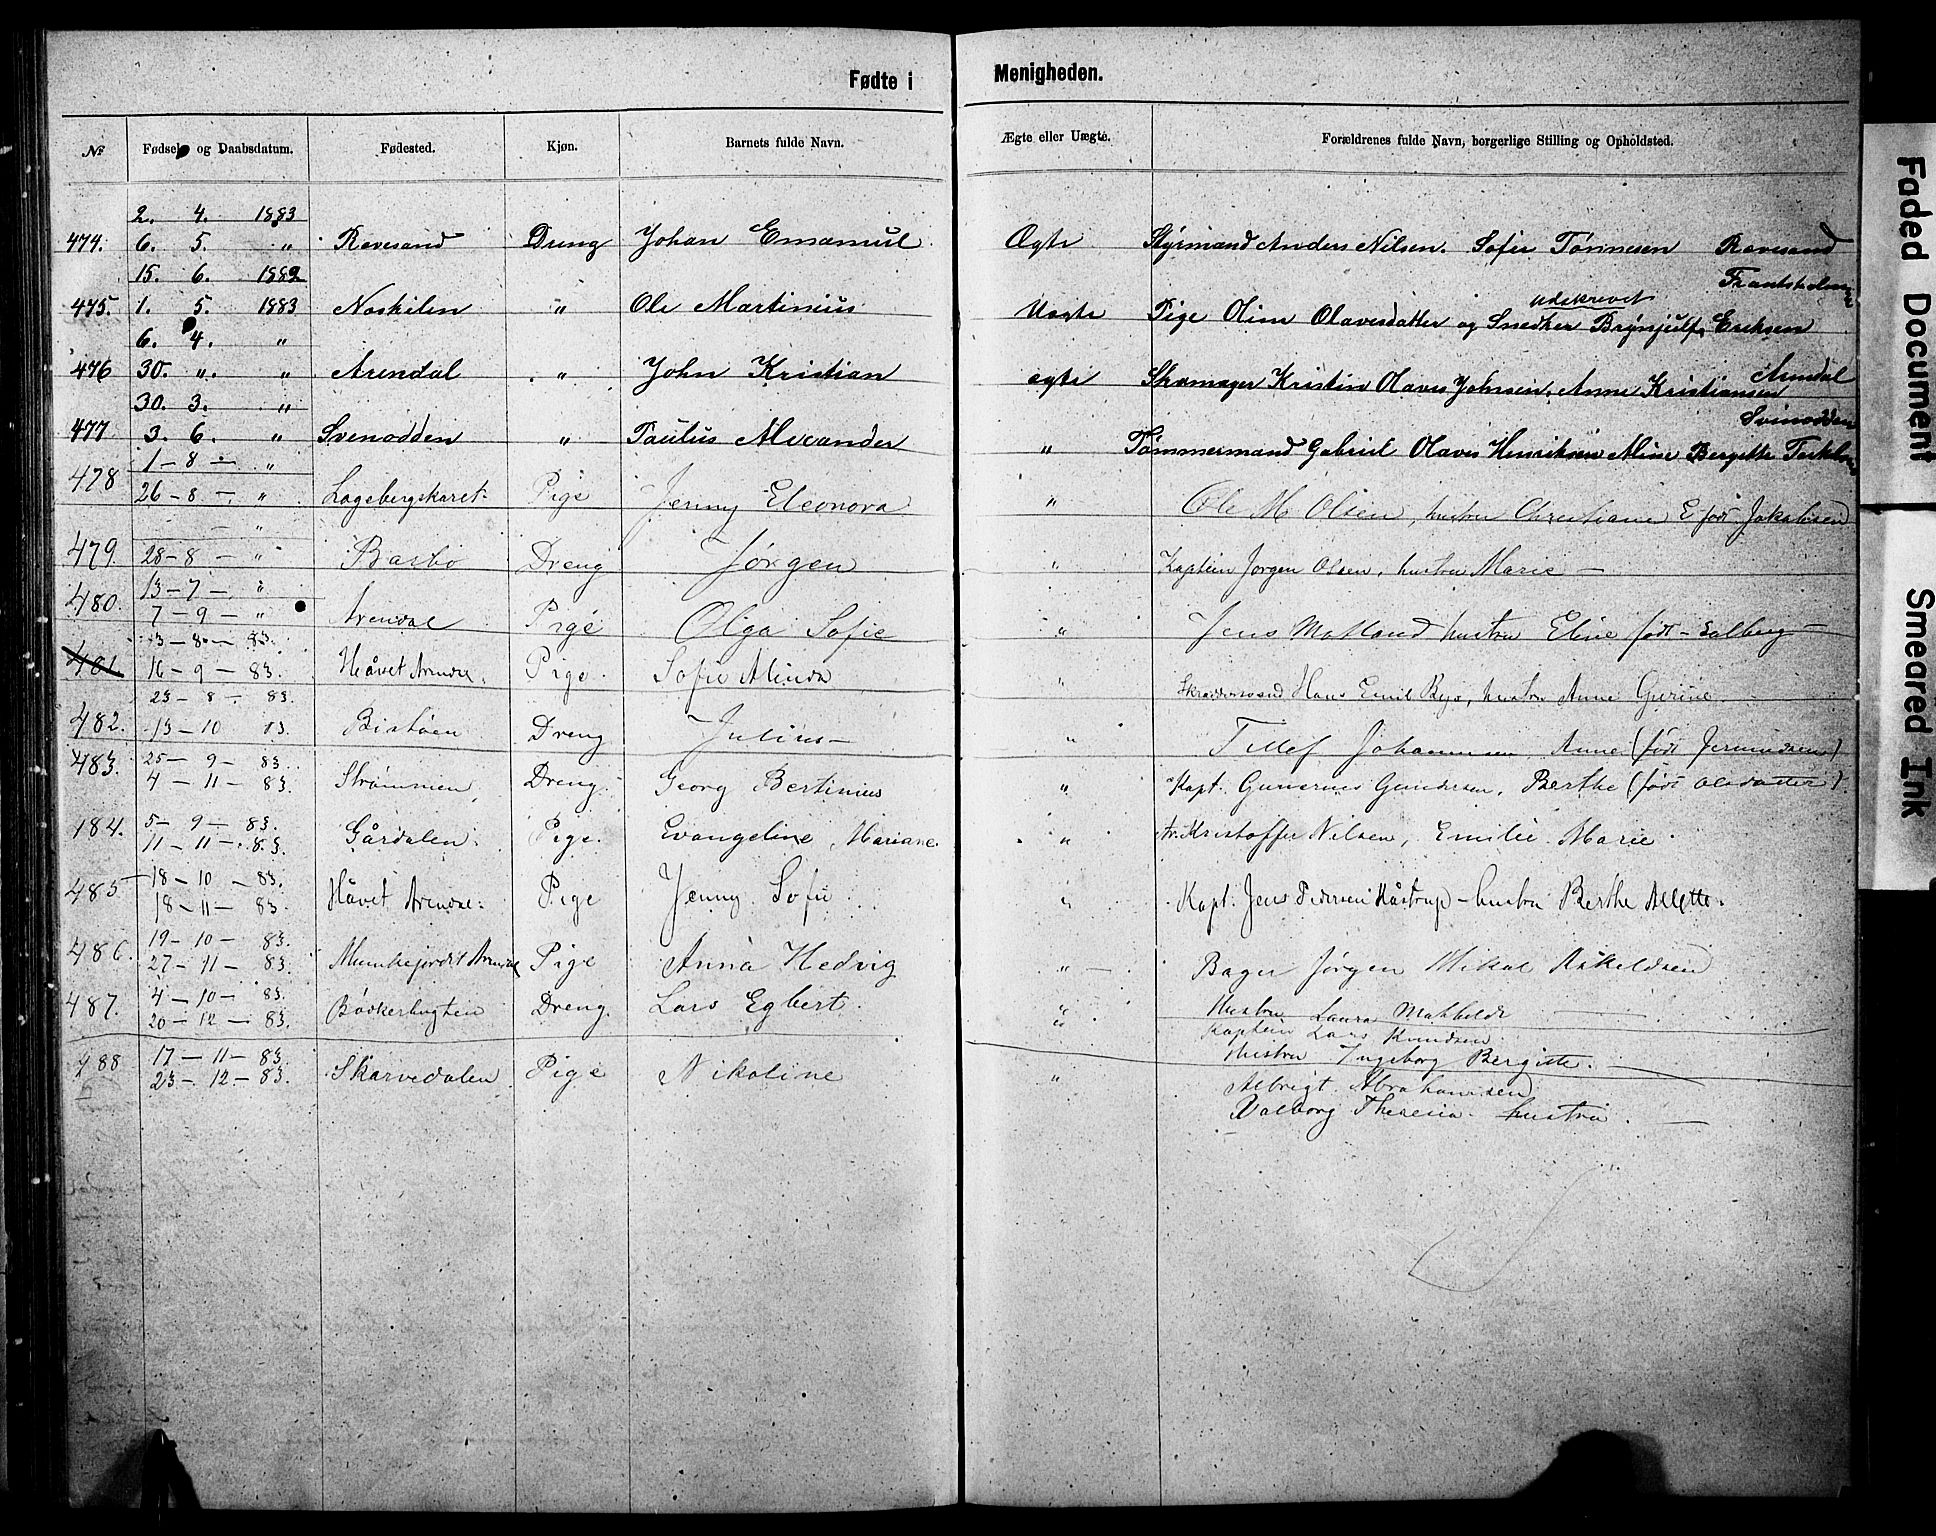 Fødte i Menigheden.
№ Fødsels og Daabsdatum. Fødested. Kjøn. Barnets fulde Navn. Ægte eller Uægte. Forældrenes fulde Navn, borgerlige Stilling og Opholdsted.
2. 4. 1883
474. 6. 5. " Ravesand Dreng Johan Emanuel Ægte Styrmand Anders Nilsen. Sofie Tønnesen Ravesand
15. 6. 1882 Frantsholmen
475. 1. 5. 1883 Noskilen " Ole Martinius Uegte Pige Oline Olavesdatter og Snedker Brynjulf Eriksen udskrevet
6. 4. "
476 30. ". " Arendal " John Kristian ægte Skomager Kristin Olaves Johnsen. Anne Kristiansen Arendal
30. 3. " Svinodden
477 3. 6. " Svenodden " Paulus Alexander " Tømmermand Gabriel Olaves Henriksen Aline Bergitte
1-8- "
478 26-8-. " Lagebergskaret Pige Jenny Eleonora " Ole M. Olsen, hustru Christiane E. født Jakobsen
- "
479. 28-8- " Barbo Dreng Jørgen " Kaptein Jørgen Olsen, hustru Marie —
13-7-. "
480. 7-9- " Arendal Pige Olga Sofie " Jens Matland hustru Eline født - Solberg —
13-8-83.
481 16-9-83. Håvet Arendal. Pige. Sofie Alinda " Hans Emil Bye, hustru Anne Gurine
23-8-83.
482. 13-10 83. Bistøen Dreng Julius — " Tellef Johannesen Anne (født Jermundsen)
483. 25-9-83.
4-11-83. Strømmen, Dreng. Georg Bertinius " Kapt. Gunernes Gundersen, Berthe (født Olsdatter).
184. 5-9-83.
11-11-83. Gårdalen. Pige. Evangeline Mariane. " Kristoffer Nilsen, Emilie Marie.
485 18-10-83.
18-11-83. Håvet Arendal. Pige Jenny Sofie " Kapt. Jens Pedersen Håstrup - hustru Berthe Alette.
486. 19-10-83.
27-11-83. Munkejordet Arendal Pige Anna Hedvig " — Bager Jørgen Mikal Askeldsen
Hustru Laura Mathilde
487. 4-10-83.
20-12-83. Bødkerbugten Dreng. Lars Egbert. " Kaptein Lars Knudsen.
Hustru Ingeborg Bergitte. —
488 17-11-83.
23-12-83. Skarvedalen Pige Nikoline " Albrigt Abrahamsen
Valborg Theresia. hustru. —
Faded Document
Smeared Ink